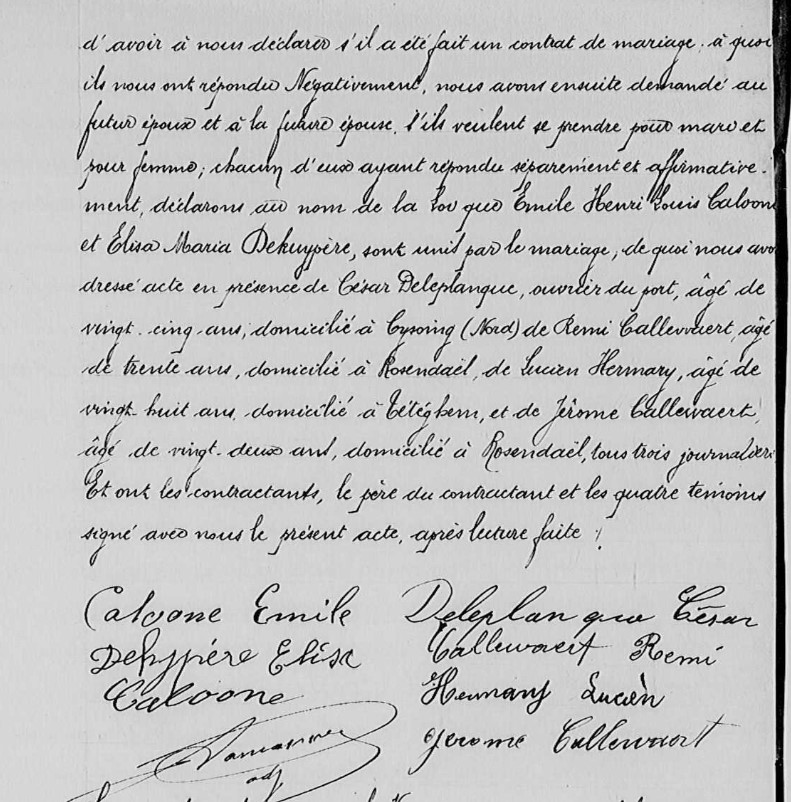 d'avoir à nous déclarer s'il a été fait un contrat de mariage, à quoi
ils nous ont répondu Négativement, nous avons ensuite demandé au
futur époux et à la future épouse, s'ils veulent se prendre pour mari et
pour femme; chacun d'eux ayant répondu séparement et affirmative-
ment, déclarons au nom de la Loi que Emile Henri Louis Caloone
et Elisa Maria Dekuypère, sont unis par le mariage, de quoi nous avo
dressé acte en présence de César Deleplanque, ouvrier du port, âgé de
vingt-cinq ans, domicilié à Cysoing (Nord) de Remi Callewaert, âgé
de trente ans, domicilié à Rosendaël, de Lucien Hermary, âgé de
vingt-huit ans, domicilié à Tétéghem, et de Jérome Callewaert,
âgé de vingt-deux ans, domicilié à Rosendaël, tous trois journaliers.
Et ont les contractants, le père du contractant et les quatre témoins
signé avec nous le présent acte, après lecture faite ./.
Caloone Emile Deleplanque César
Dekypère Elisa Callewaert Remi
Caloone Hermary Lucien
Jerome Callewaert
adj